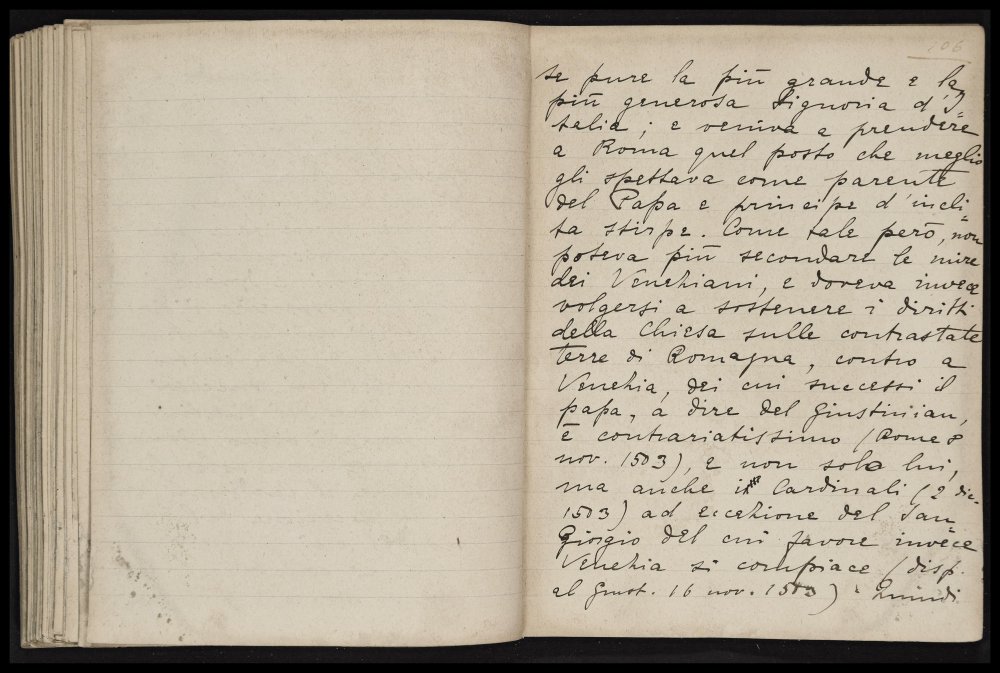 106
se pure la più grande e la
più generosa Signoria d'I=
talia ; e veniva a prendere
a Roma quel posto che meglio
gli spettava come parente
del Papa e principe d'incli=
ta stirpe. Come tale però, non
poteva più secondare le mire
dei Veneziani, e doveva invece
volgersi a sostenere i diritti
della Chiesa sulle contrastate
terre di Romagna, contro a
Venezia, dei cui successi il
papa, a dire del Giustinian,
è contrariatissimo (Rome 8
nov. 1503), e non solo lui,
ma anche i Cardinali (2 dic.
1503) ad eccezione del San
Giorgio del cui favore invece
Venezia si compiace (disp.
al Giust. 16 nov. 1503). Quindi